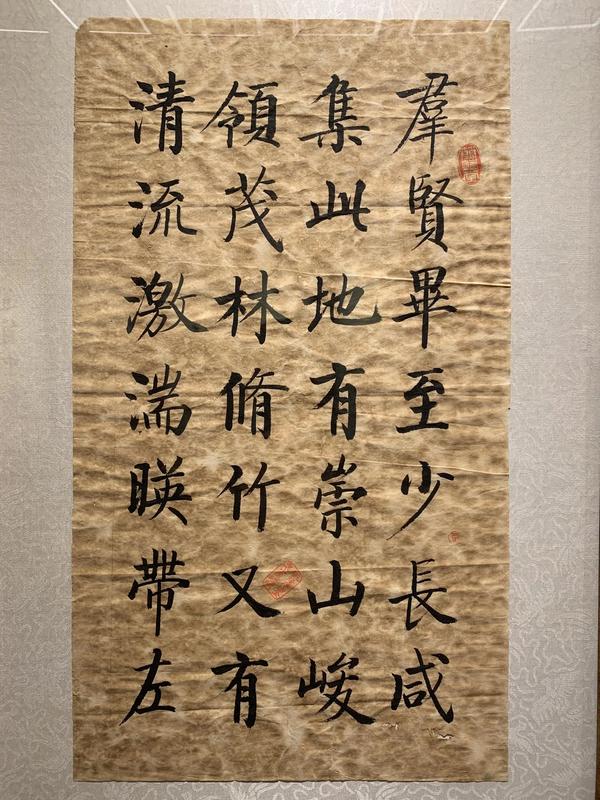 羣賢畢至少長咸
集此地有崇山峻
領茂林脩竹又有
清流激湍暎帶左